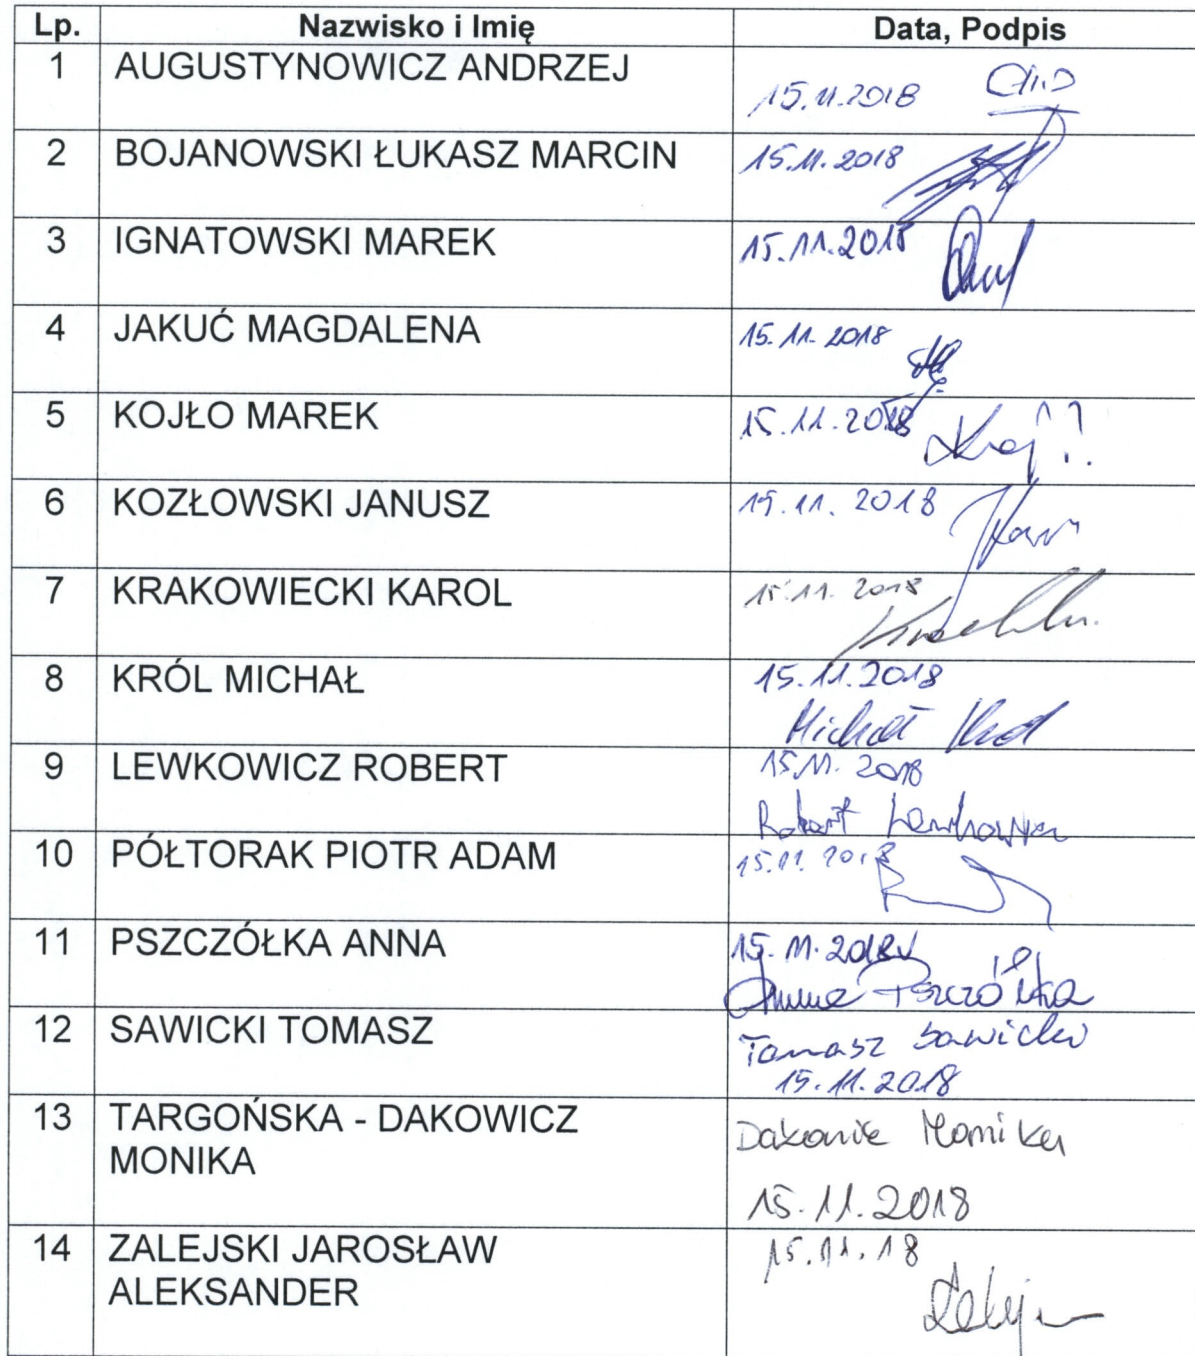 Lp. Nazwisko i Imię Data, Podpis
1 AUGUSTYNOWICZ ANDRZEJ
15.11.2018
2 BOJANOWSKI ŁUKASZ MARCIN 15.11.2018
3 IGNATOWSKI MAREK 15.11.2018
4 JAKUĆ MAGDALENA 15.11.2018
5 KOJŁO MAREK 15.11.2018
6 KOZŁOWSKI JANUSZ 15.11.2018
7 KRAKOWIECKI KAROL 15.11.2018
8 KRÓL MICHAŁ 15.11.2018
Michał Król
9 LEWKOWICZ ROBERT 15.11.2018
Robert Lewkowicz
10 PÓŁTORAK PIOTR ADAM 15.11.2018
11 PSZCZÓŁKA ANNA 15.11.2018
Anna Pszczółka
12 SAWICKI TOMASZ Tomasz Sawicki
15.11.2018
13 TARGOŃSKA - DAKOWICZ Dakowic Monika
MONIKA
15.11.2018
14 ZALEJSKI JAROSŁAW 15.11.18
ALEKSANDER